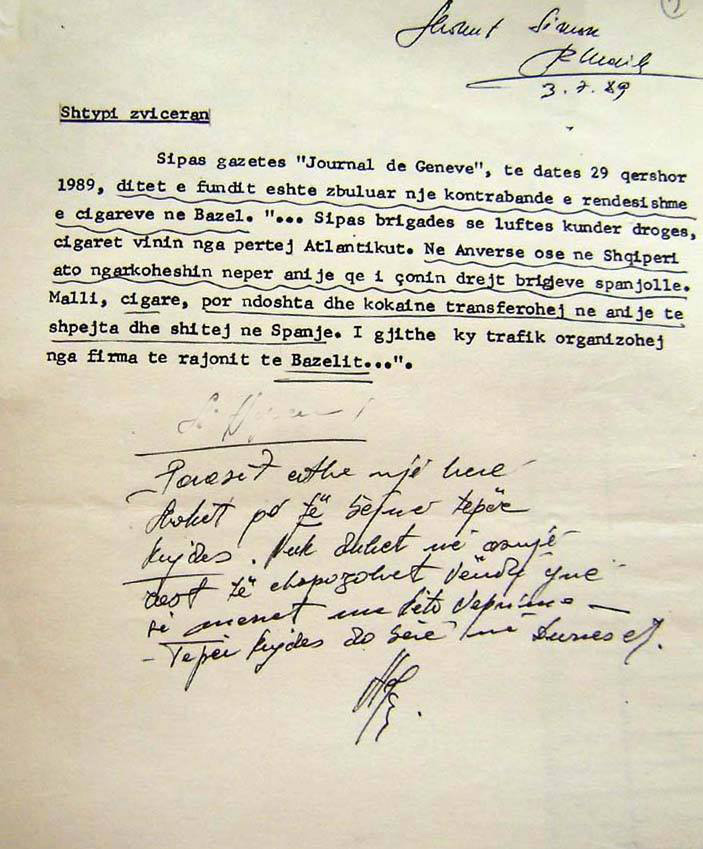 Shokut Simon
3.7.89
Shtypi zviceran
Sipas gazetes "Journal de Geneve", te dates 29 qershor
1989, ditet e fundit eshte zbuluar nje kontrabande e rendesishme
e cigareve ne Bazel. "... Sipas brigades se luftes kunder droges,
cigaret vinin nga pertej Atlantikut. Ne Anverse ose ne Shqiperi
ato ngarkoheshin neper anije qe i çonin drejt brigjeve spanjolle.
Malli, cigare, por ndoshta dhe kokaine transferohej ne anije te
shpejta dhe shitej ne Spanje. I gjithe ky trafik organizohej
nga firma te rajonit te Bazelit...".
Porosit edhe një herë
shokët që të bëjnë tepër
kujdes. Nuk duhet në asnjë
rast të ekspozohet vëndi ynë
si me këto veprime –
– Tepër kujdes do bërë në Durres